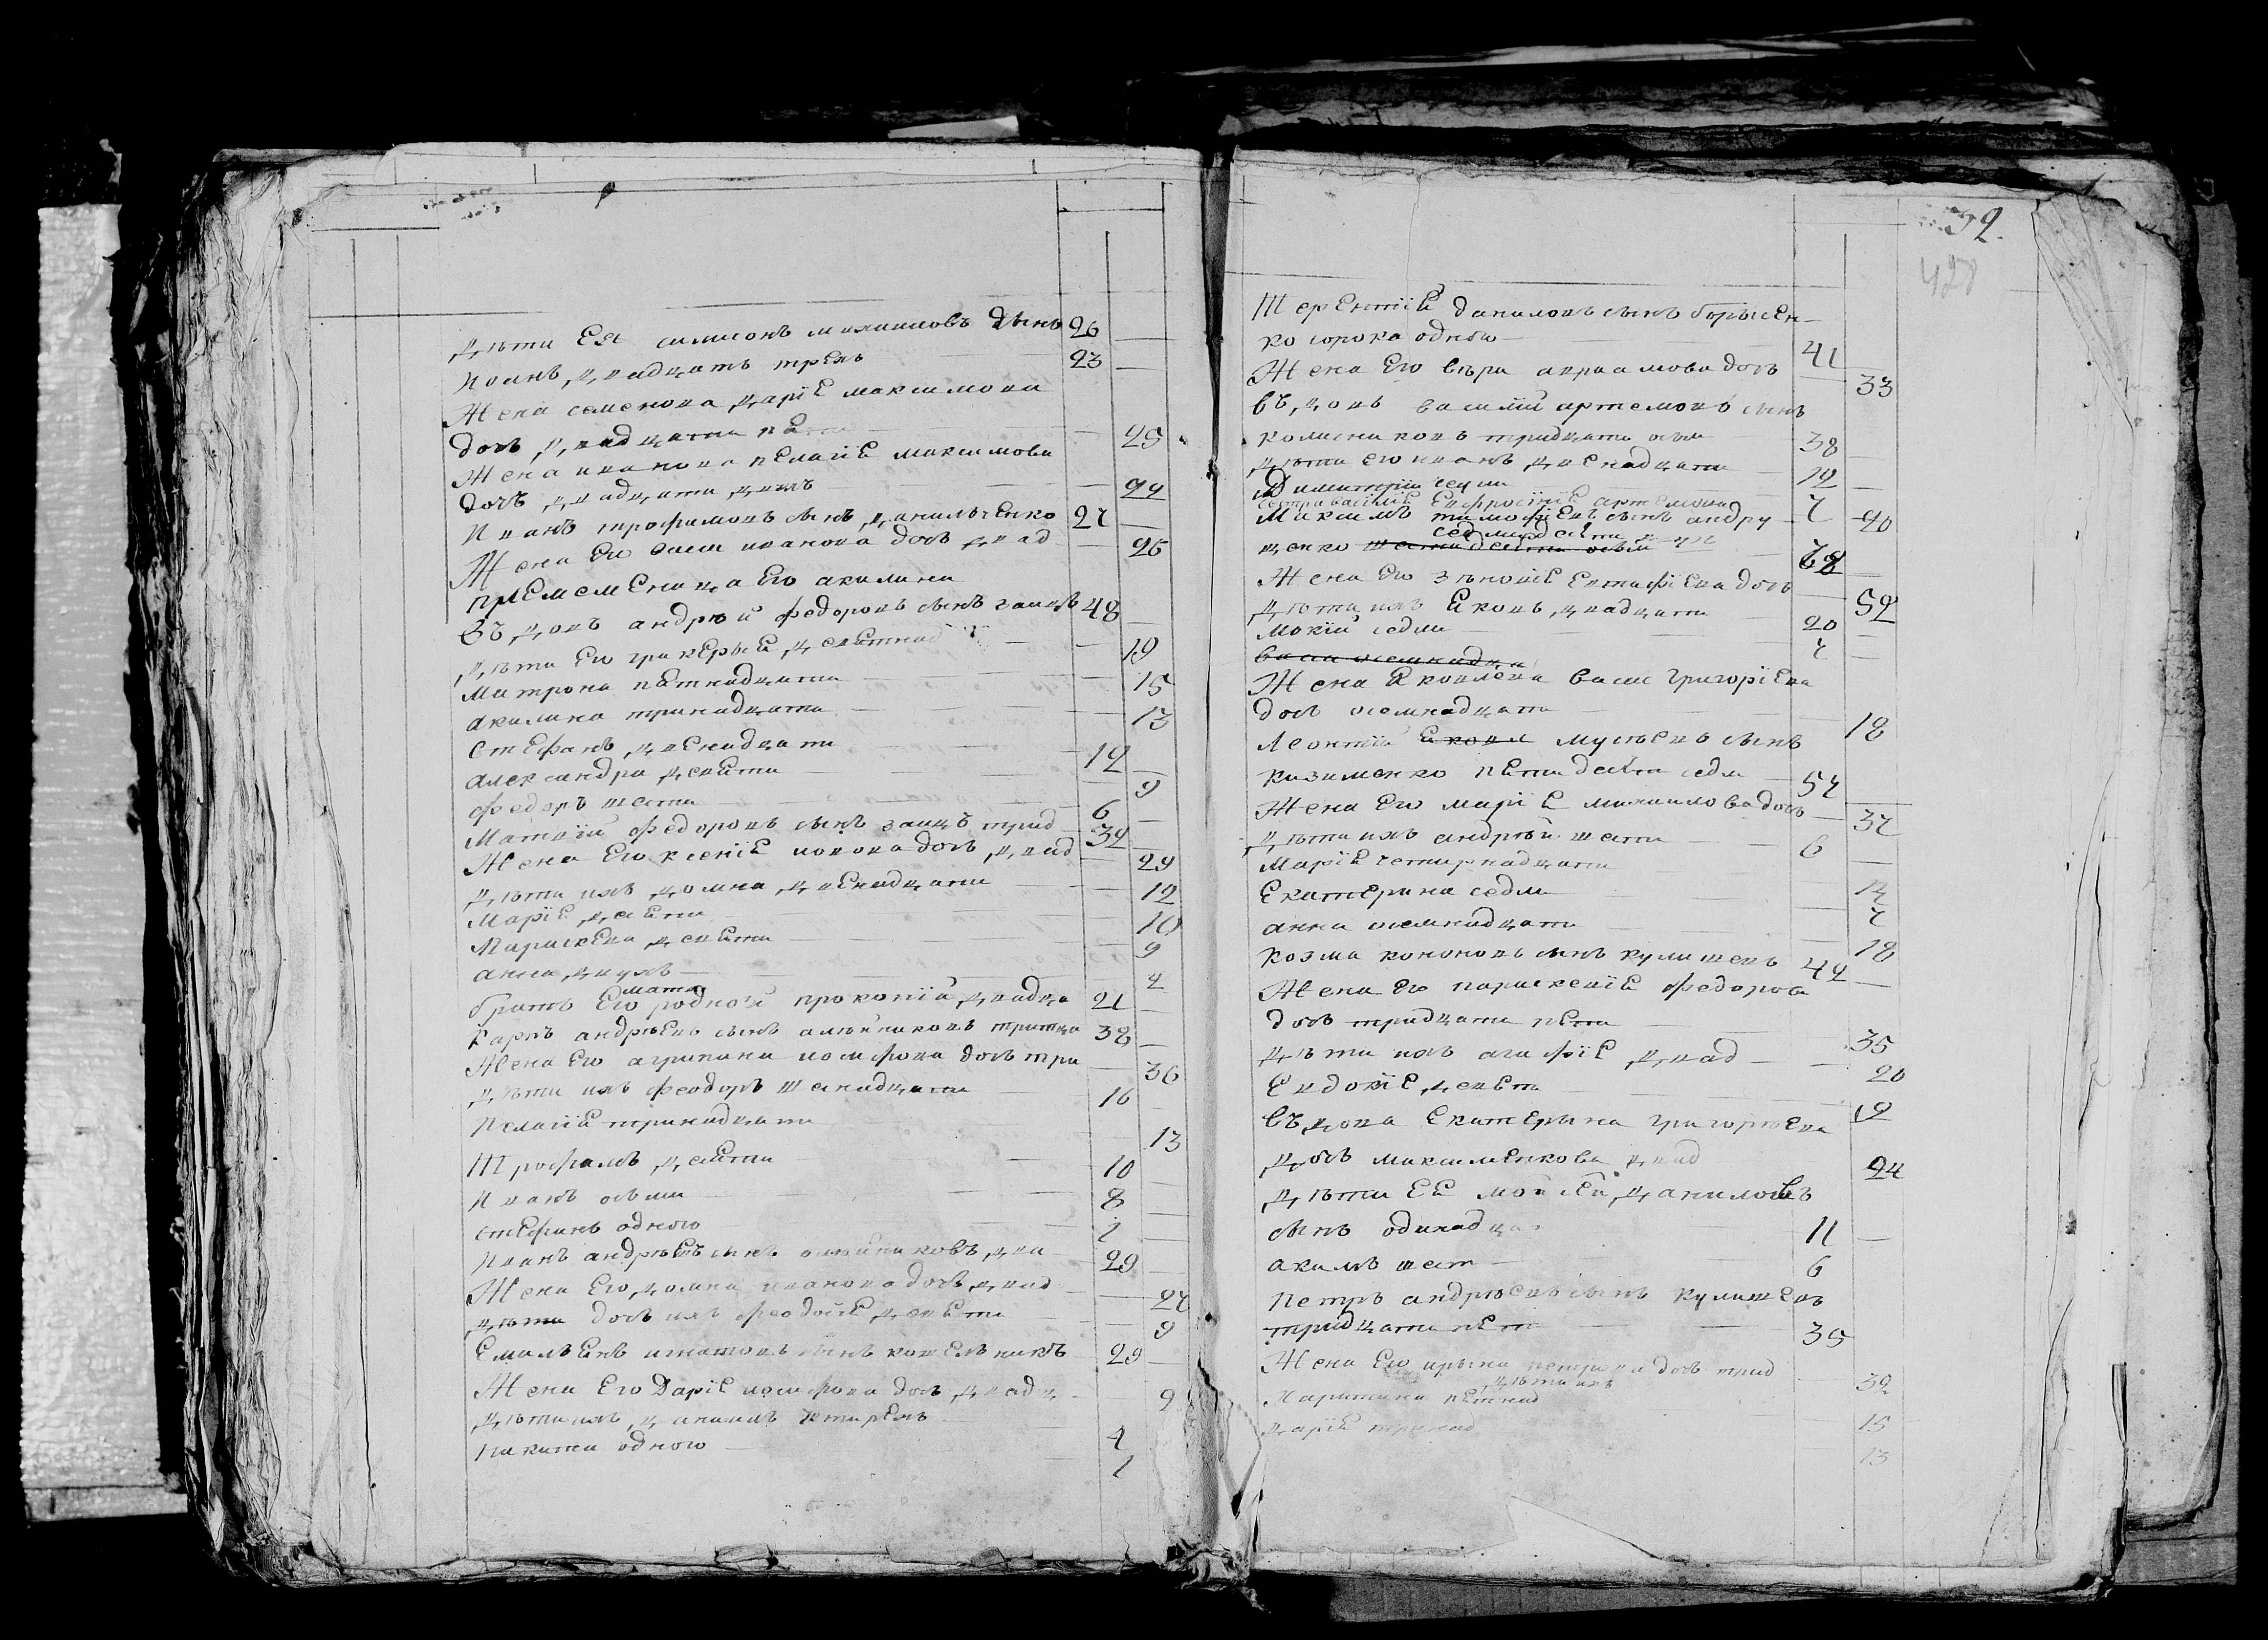 дѣти Ея симионъ михаиловъ сынъ 26
иванъ двадцать трехъ 23
Жена семенова дарїя максимова
дочь двадцати пя 25
Жена иванова пелагїя максимова
дочь двадцати двухъ 22
Иванъ трофимовъ сынъ данильченко 27
Жена Его васи иванова дочь двад 25
племеменица Его акилина
Въдовъ андрѣй федоровъ сынъ заицъ 48
дѣти Его гликерыя девятнад 19
матрона пятнадцати 15
акилина тринадцати 13
Стефанъ двенадцати 12
александра девяти 9
федоръ шести 6
Матвїй федоровъ сынъ заицъ трид 32
Жена Его ксенїя иовова дочь двад 29
дѣти ихъ домна двенадцати 12
марїя десяти 10
Параскева девяти 9
анна двухъ 2
братъ Его матє родной прокопїй двадца 21
Карпъ андрѣевъ сынъ алѣйниковъ тритца 38
Жена Его агрипина иосифова дочь три 36
дѣти ихъ феодоръ шеснадцати 16
Пелагїя тринадцати 13
Трофимъ десяти 10
Иванъ осьми 8
стефанъ одного 1
Иванъ андрѣевъ сынъ олѣйниковъ два 29
Жена Его домна иванова дочь двад 27
дѣти дочь ихъ феодосїя девяти 9
Емильянъ игнатовъ сынъ котельникъ 29
Жена Его Дарїя иосифова дочь двадц 2
дѣти ихъ данїилъ четирехъ 4
никита одного 1
32.
428
Терентїй даниловъ сынъ борысен-
ко сорока одного 41
Жена Его вѣра авраамова дочь 33
въдовъ василїй артемовъ сынъ
колисниковъ тридцати осьм 38
дѣти его иванъ двенадцати 12
Димитрїи седми 7
сестра василїя Ефросїнїя артемова 20
Максимъ тимофїевъ сынъ андру
седмидесяти
щенко шестидесяти осьм 72
Жена Его зѣновїя Евтафїева дочь 52
дѣти ихъ Яковъ двадцати 20
мокїй седми 7
васи осемнадца
Жена Яковлева васи григорїева
дочь осемнадцати 18
Леонтїй Яковл мусѣевъ сынъ
кизименко пятидесяти седм 57
Жена Его марїя михаилова дочь 37
дѣти ихъ андрѣй шести 6
марїя четирнадцати 14
Екатерина седми 7
анна осемнадцати 18
козма кононовъ сынъ кулишевъ 42
Жена Его параскевїя федорова
дочь тридцати пяти 35
дѣти ихъ агафїя двад 20
Евдокїя девят 19
въдова Екатерына григорѣева
дочь максименкова двад 24
дѣти Ея мойсей даниловъ
сынъ одинадца 11
акимъ шест 6
Петръ андрѣевъ сынъ кулишевъ
тридцати пят 35
Жена Его ирына петрова дочь трид 32
дѣти ихъ
Харитина пятнад 15
дарїя тринад 13